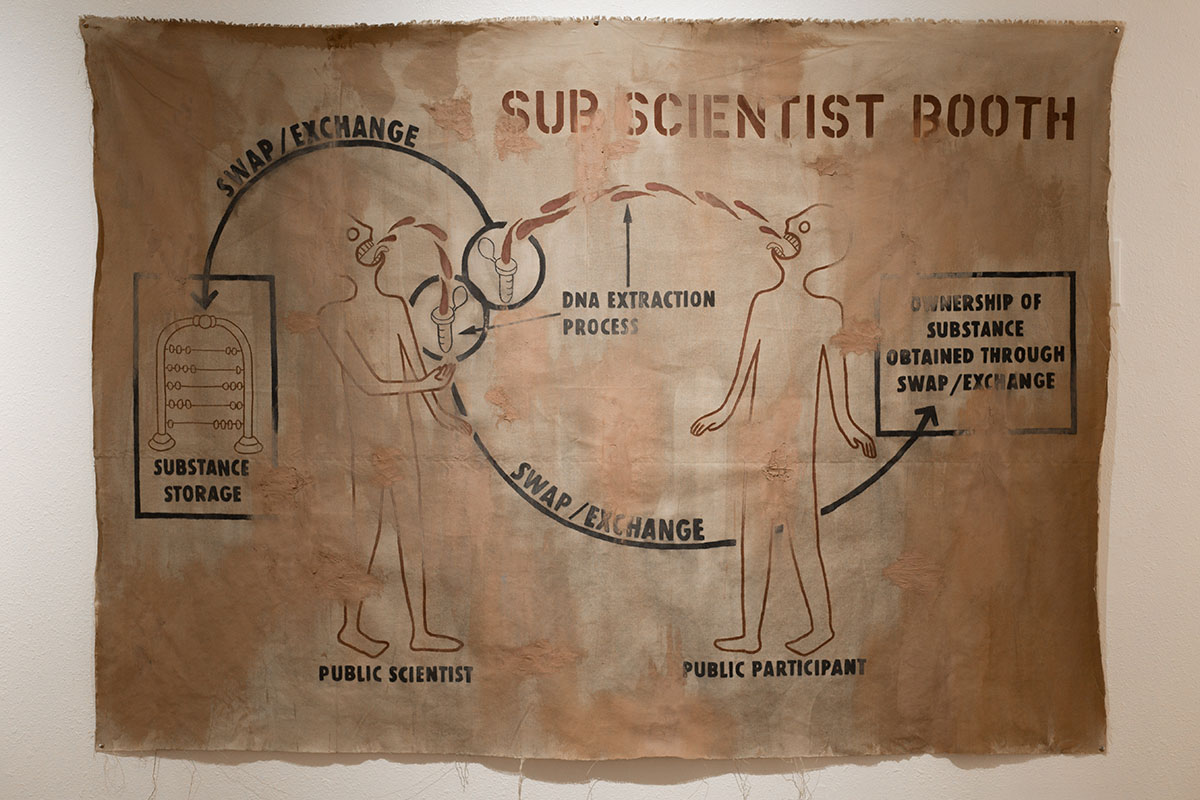 SUB SCIENTIST BOOTH
SWAP/EXCHANGE
DNA EXTRACTION
PROCESS
OWNERSHIP OF
SUBSTANCE
OBTAINED THROUGH
SWAP/EXCHANGE
SUBSTANCE
STORAGE
SWAP/EXCHANGE
PUBLIC SCIENTIST
PUBLIC PARTICIPANT